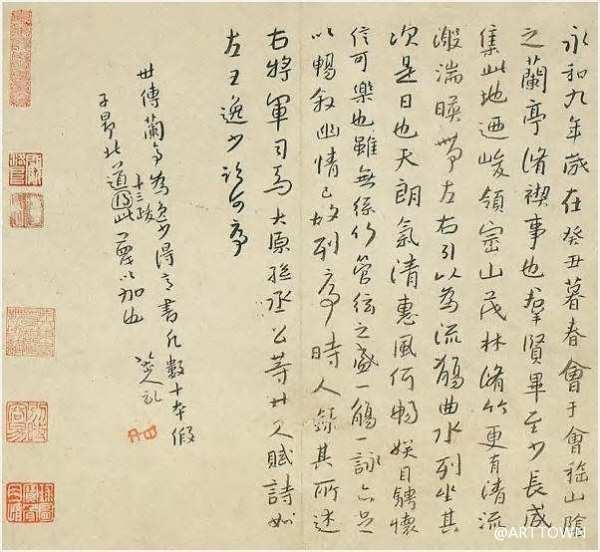 永和九年歲在癸丑暮春會于會稽山陰
之蘭亭脩禊事也羣賢畢至少長咸
集此地迺峻領崇山茂林脩竹更有清流
激湍暎帶左右引以為流觴曲水列坐其
次是日也天朗氣清惠風和暢娛目騁懷
信可樂也雖無絲竹管弦之盛一觴一詠亦足
以暢敘幽情已故列序時人錄其所述
右將軍司馬太原孫丞公等廿人賦詩如
左王逸少序
世傳蘭亭為逸少得意書凡數十本假
子昂北道十三跋此以加也
@ARTTOWN